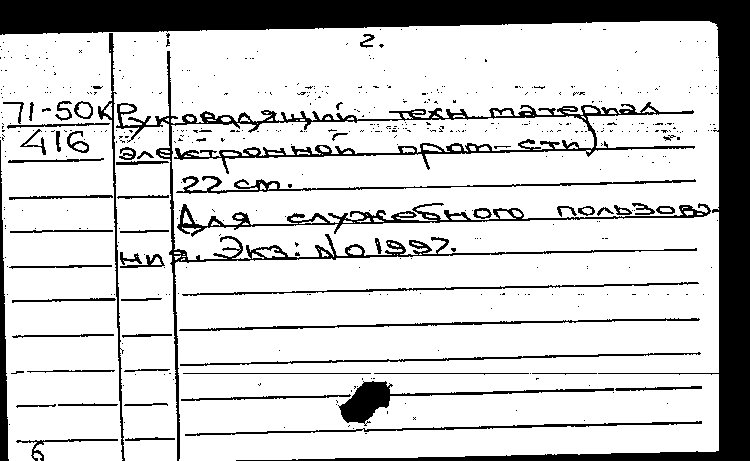 2.
71-50К Руководящий техн материал
416 электронной пром-сти).
22 см.
Для служебного пользова-
ния. Экз: №01997.
6